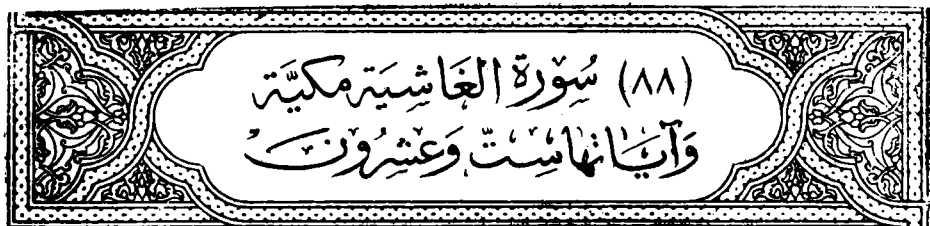 (٨٨) سُورَة الغَاشِيَة مكيَّة
وَآيَاتهَا سِتّ وَعِشْرُونَ